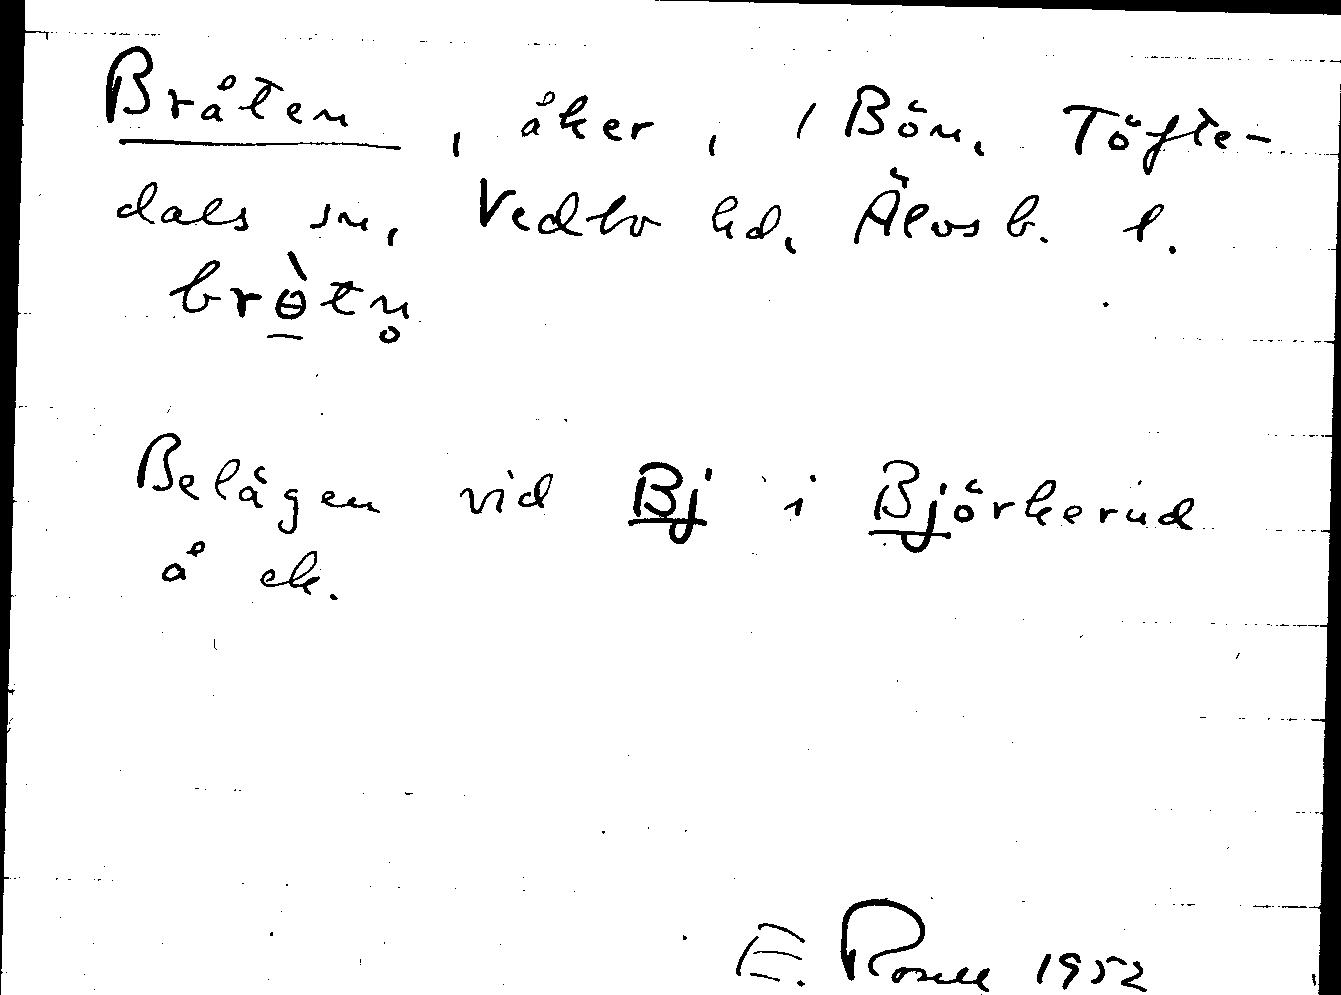 Bråten, åker, 1 Bön, Töfte-
dals sn, Vedbo hd, Älvsb. l.
brɵ̀tn̥
Belägen vid Bj i Björkerud
å ek.
E. Rosell 1952